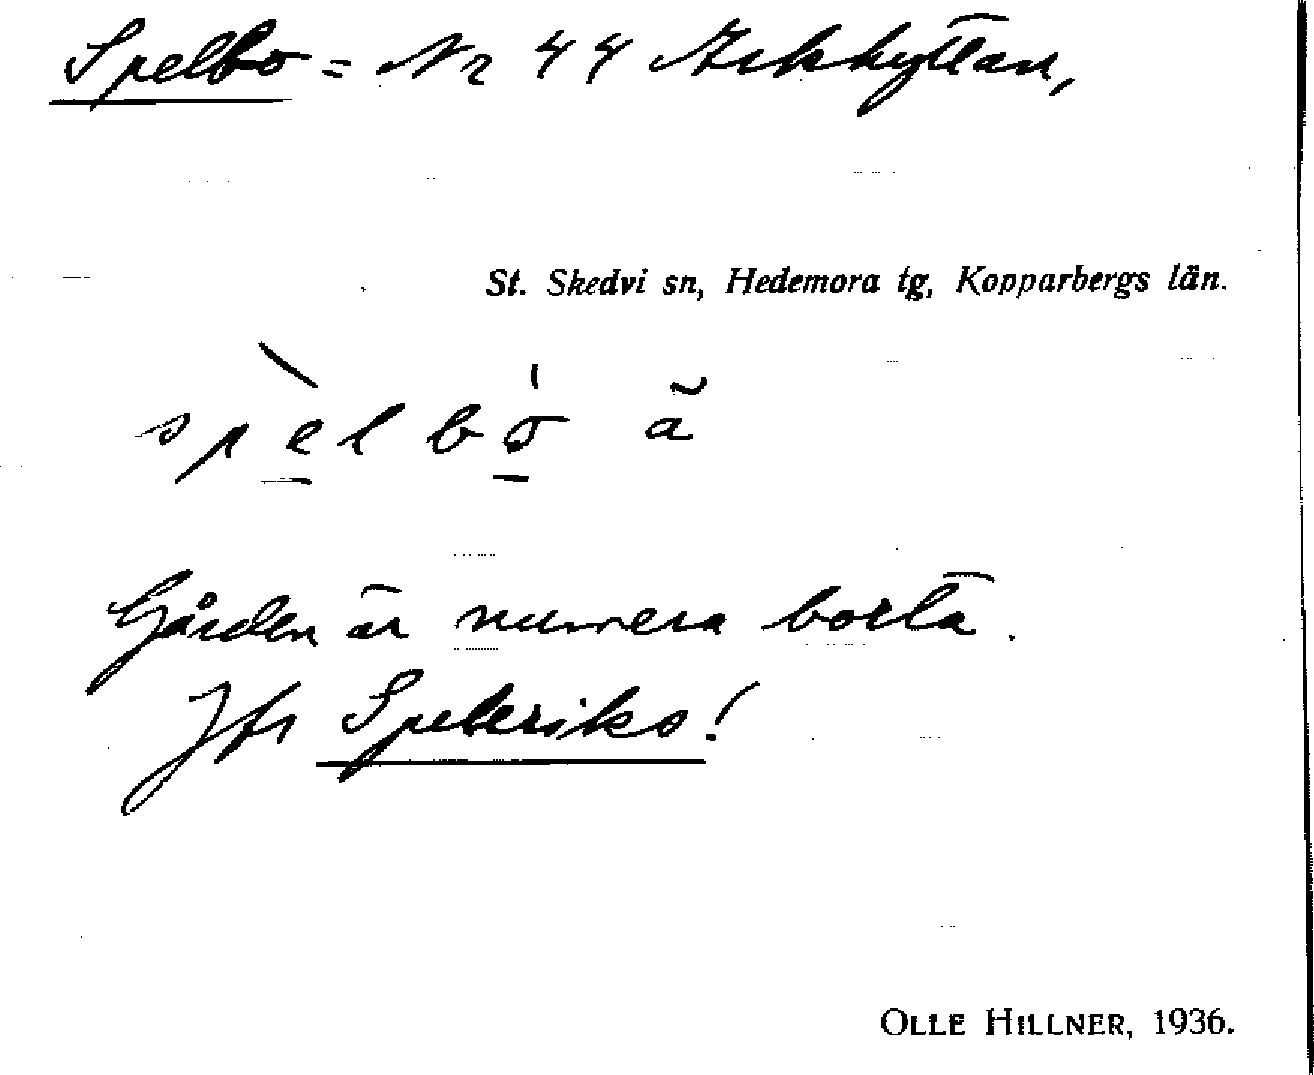 Spelbo = Nr 44 Arkhyttan,
St. Skedvi sn, Hedemora tg, Kopparbergs län.
spèlbo̍ ã
Gården är numera borta.
Jfr Speleriks!
OLLE HILLNER, 1936.